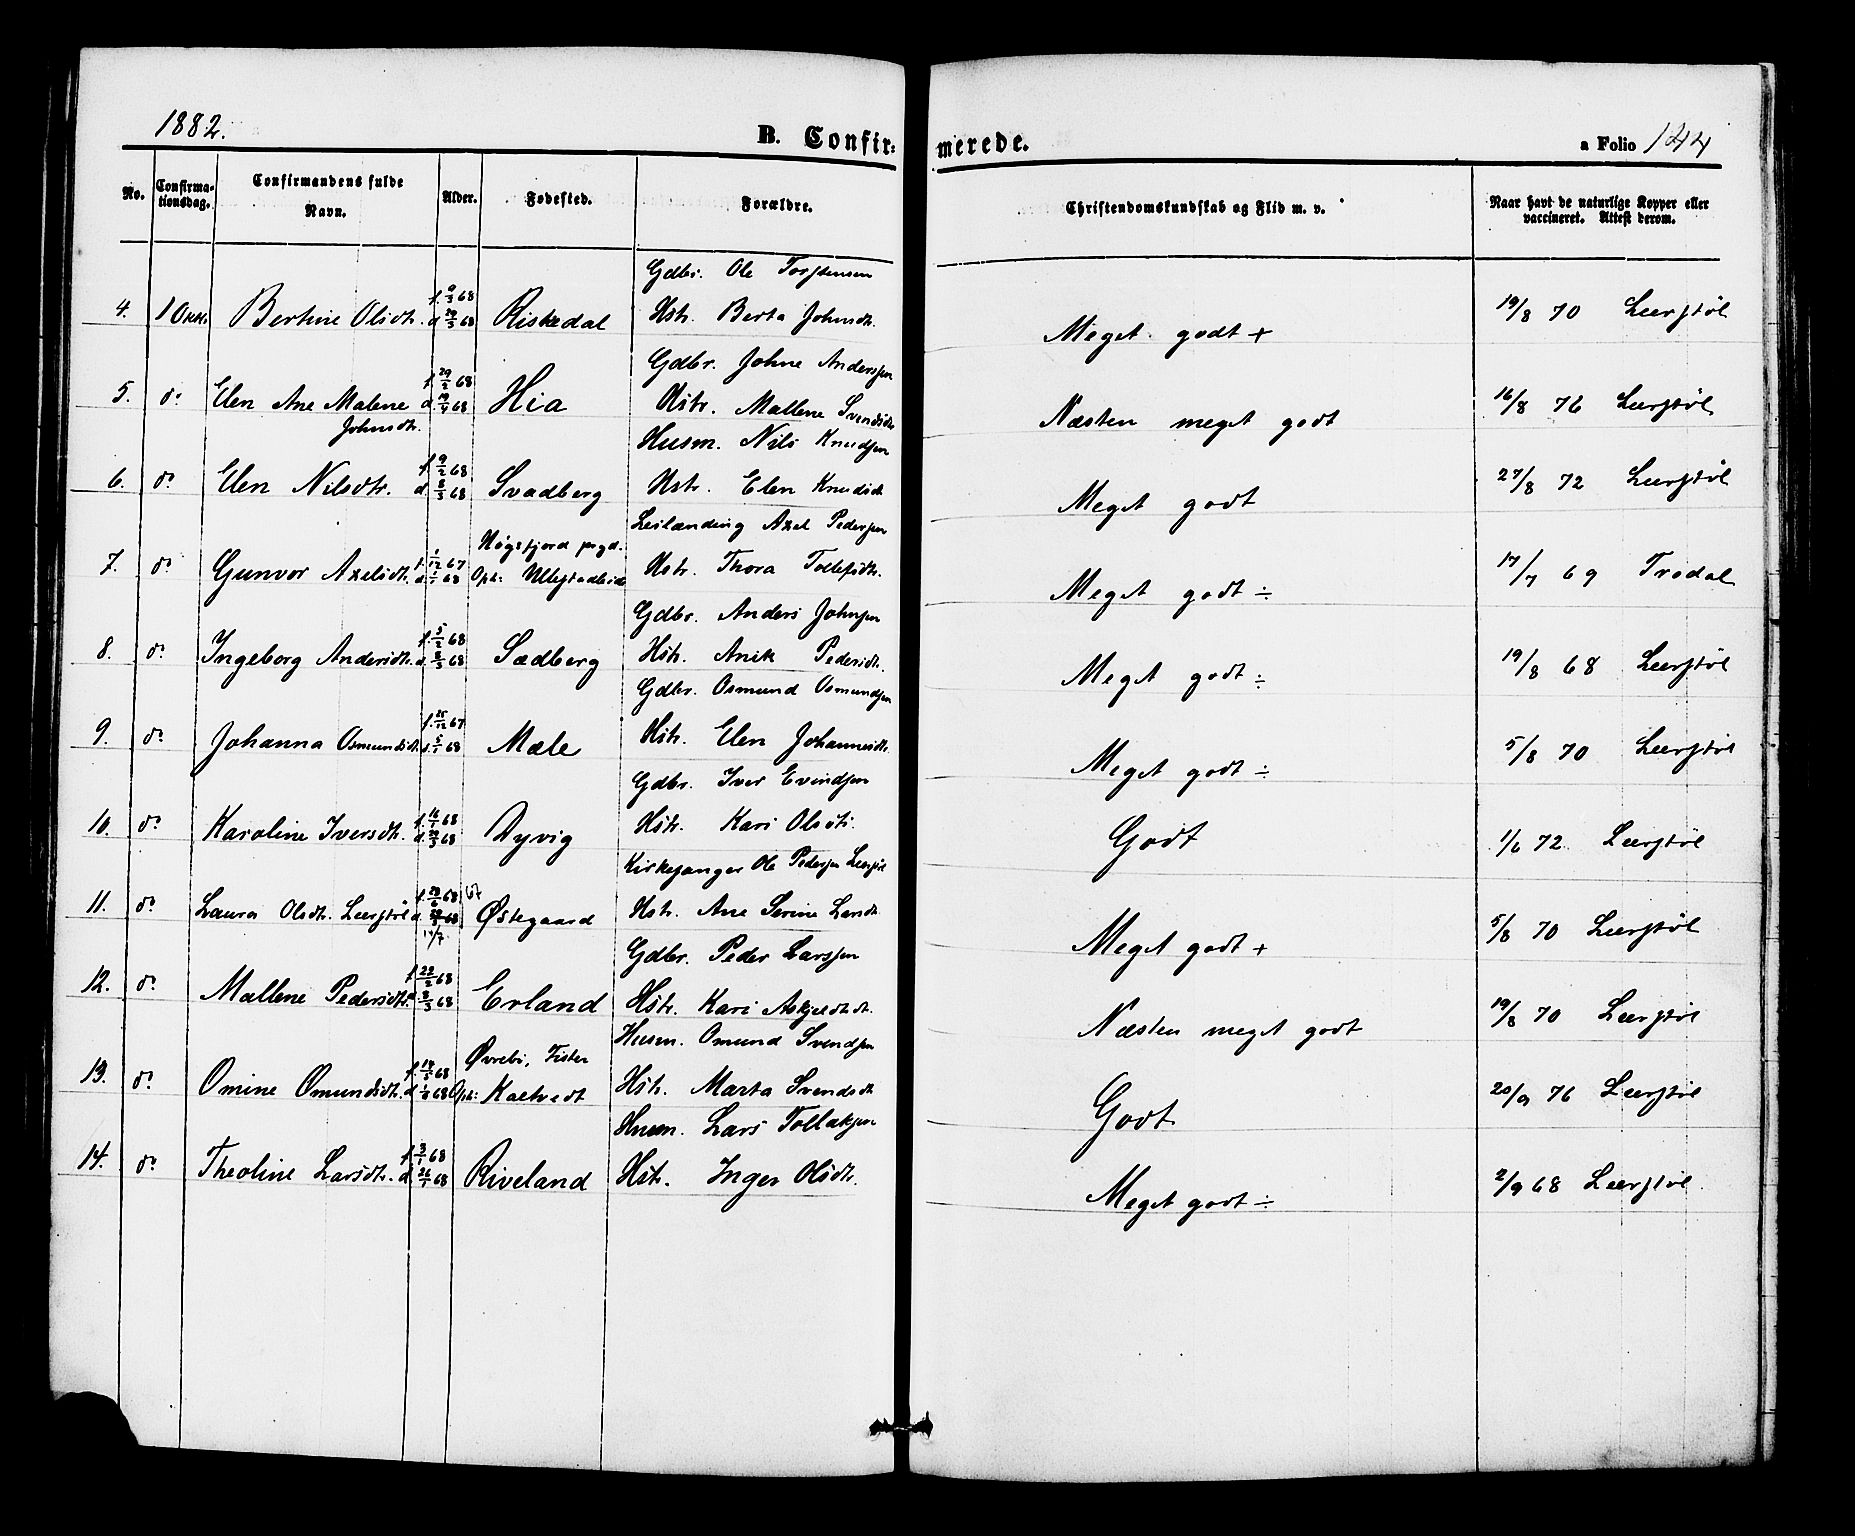 1882.
B. Confirmerede.
a Folio 144
No. Confirmationsdag. Confirmandens fulde Navn. Alder. Fødested. Forældre. Christendomskundskab og Flid m. v. Naar havt de naturlige Kopper eller vaccineret. Attest derom.
Gdbr. Ole Torstensen
4. 1 Okt. Bertine Olsdtr. f. 9/3 68 d. 29/3 68 Riskedal Hstr. Berta Johnsdtr. Meget godt + 19/8 70 Leerstøl
Gdbr. Johne Anderssen
5. do Elen Ane Malene Johnsdtr. f. 29/2 68 d. 19/4 68 Hia Hstr. Mallene Svendsdtr. Næsten meget godt 16/8 76 Leerstøl
Husm. Nils Knudsen
6. do Elen Nilsdtr. f. 9/2 68 d. 8/3 68 Svadberg Hstr. Elen Knudsdtr. Meget godt 27/8 72 Leerstøl
Høgsfjord prgd. Leilænding Axel Pedersen
7. do Gunvor Axelsdtr. f. 1/12 67 d. 1/1 68 Oph: Hstr. Thora Tollefsdtr. Meget godt ÷ 17/7 69 Trodal
Gdbr. Anders Johnsen
8. do Ingeborg Andersdtr. f. 5/2 68 d. 8/3 68 Sædberg Hstr. Anik Pedersdtr. Meget godt ÷ 19/8 68 Leerstøl
Gdbr. Osmund Osmundsen
9. do Johanna Osmundsdtr. f. 25/12 67 d. 5/1 68 Mæle Hstr. Elen Johannesdtr. Meget godt ÷ 5/8 70 Leerstøl
Gdbr. Iver Evindsen
10. do Karoline Iversdtr. f. 16/1 68 d. 29/3 68 Dyvig Hstr. Kari Olsdtr. Godt 1/6 72 Leerstøl
Kirkesanger Ole Pedersen Leerstøl
11. do Laura Olsdtr. Leerstøl f. 68 67 d. 68 Østegaard Hstr. Ane Serine Larsdtr. Meget godt + 5/8 70 Leerstøl
Gdbr. Peder Larssen
12. do Mallene Pedersdtr. f. 22/2 68 d. 8/3 68 Erland Hstr. Kari Askjeldsdtr. Næsten meget godt 19/8 70 Leerstøl
Øvrebø, Fister Husm. Omund Svendsen
13. do Omine Omundsdtr. f. 68 d. 68 Oph: Kalhedt Hstr. Marta Svendsdtr. Godt 20/9 76 Leerstøl
Husm. Lars Tollaksen
14. do Theoline Larsdtr. f. 3/1 68 d. 26/1 68 Riveland Hstr. Inger Olsdtr. Meget godt ÷ 2/9 68 Leerstøl